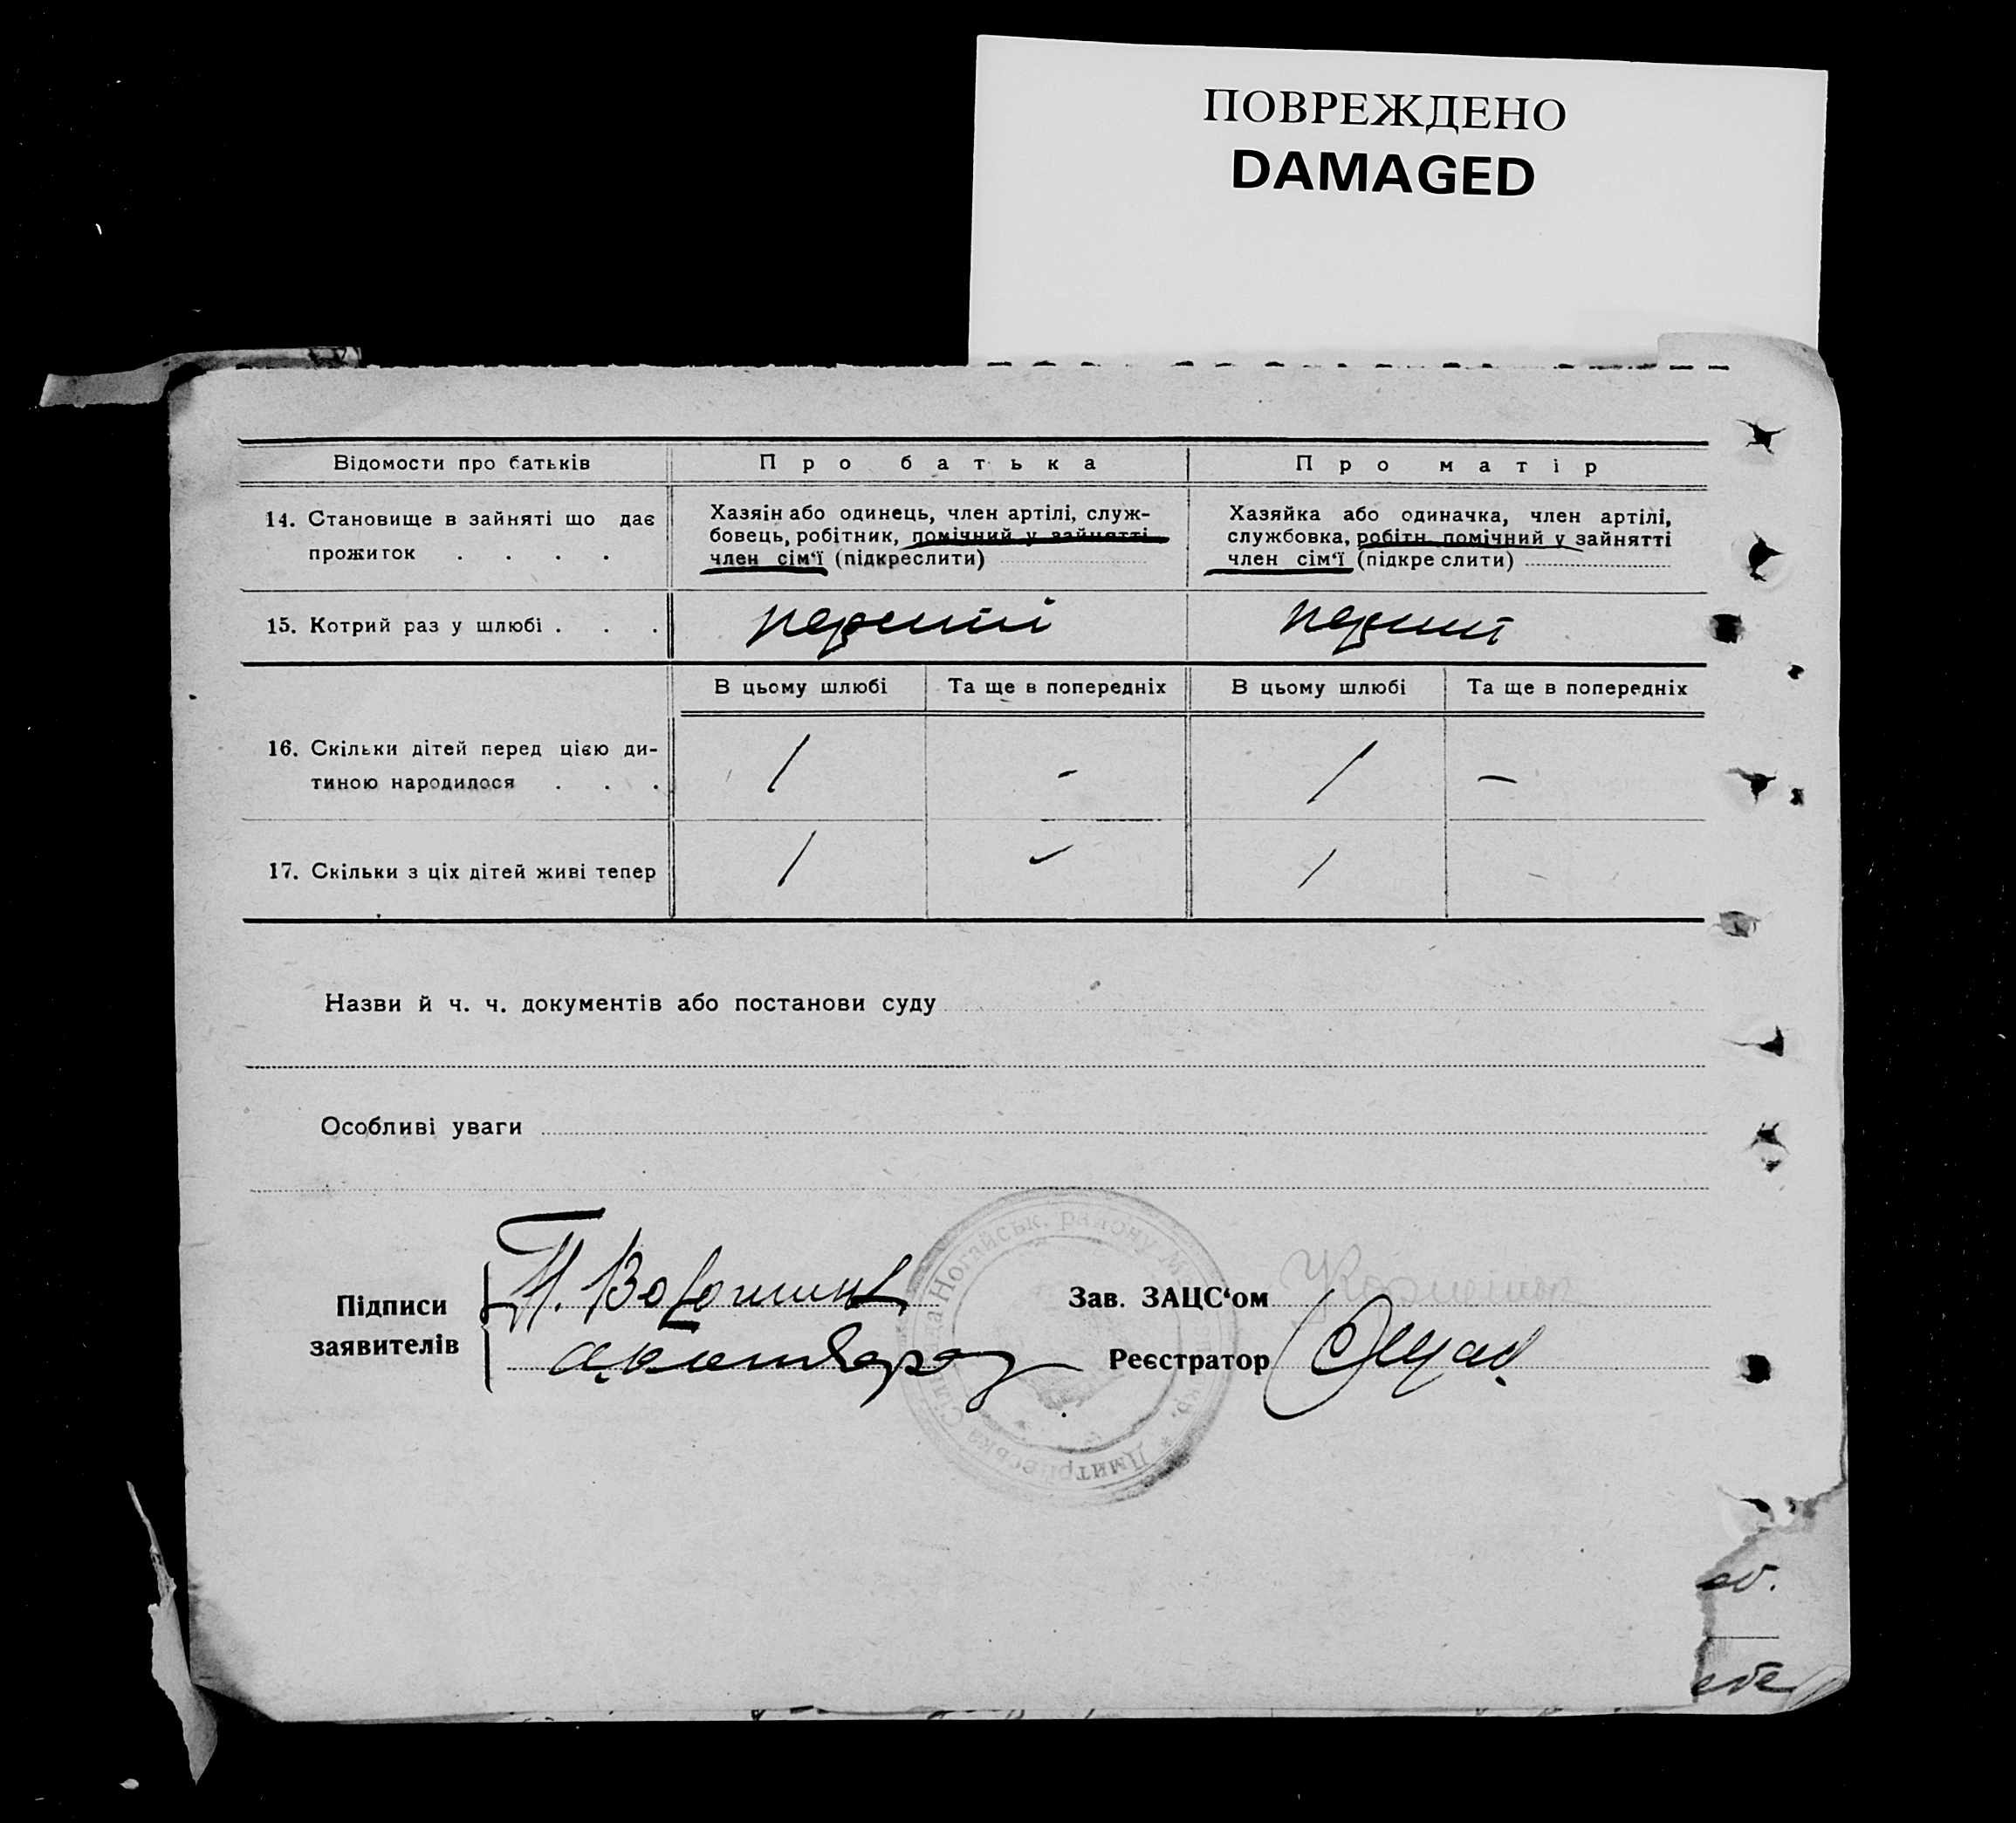 ПОВРЕЖДЕНО
DAMAGED
Відомости про батьків
Про батька
Про матір
14. Становище в зайняті що дає
прожиток . . . .
Хазяін або одинець, член артілі, служ-
бовець, робітник, помічний у зайнятті
член сім'ї (підкреслити)
Хазяйка або одиначка, член артілі,
службовка, робітн. помічний у зайнятті
член сім'ї (підкреслити)
15. Котрий раз у шлюбі . . .
перший
перший
В цьому шлюбі
Та ще в попередніх
В цьому шлюбі
Та ще в попередніх
16. Скільки дітей перед цією ди-
тиною народилося . . .
/ - / -
17. Скільки з ціх дітей живі тепер
/ - / -
Назви й ч. ч. документів або постанови суду
Особливі уваги
Підписи
заявителів
Зав. ЗАЦС'ом
Реєстратор
Ногайськ. району
Дмитрієвська